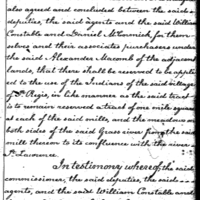 also agreed and concluded between the said
deputies, the said agents and the said William
Constable and Daniel McCormick, for them-
selves and their associates purchasers under
the said Alexander Macomb of the adjacent
lands, that there shall be reserved to be applied
to the use of the Indians of the said village of
St. Regis, in like manner as the said tract
is to remain reserved a tract of one mile square
at each of the said mills, and the meadows on
both sides of the said Grass river from the said
mill thereon to its confluence with the river
St. Lawrence.
In testimony whereof the said
commissioner, the said deputies, the said
agents, and the said William Constable and